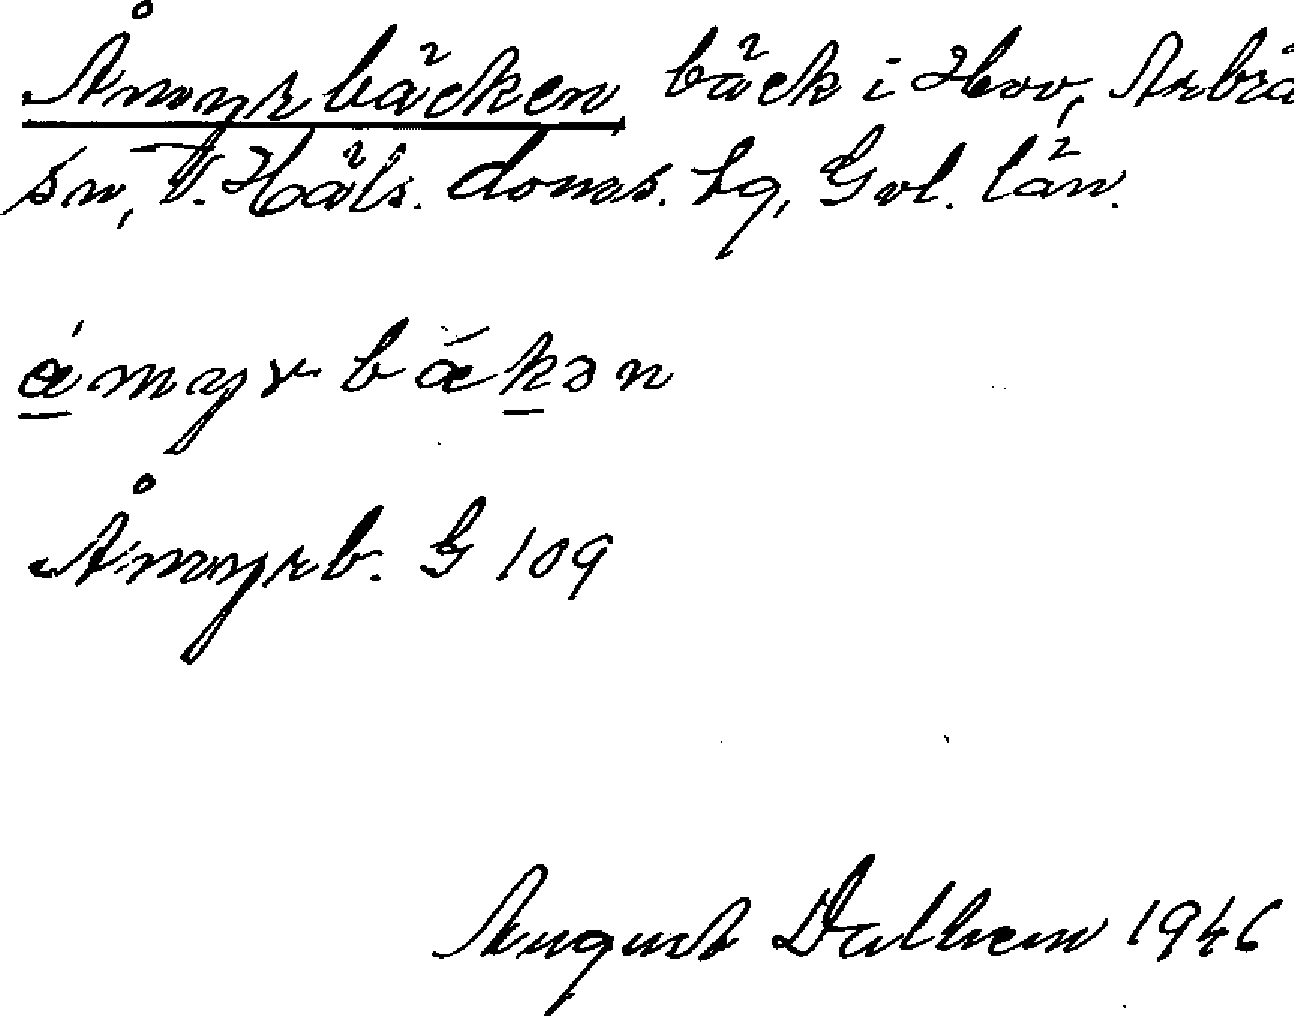 Åmyrbäcken bäck i Hov, Arbrå
sn, V. Häls. doms. lg, Gvl. län.
åmyrbækən
Åmyrb. G 109
August Dalhem 1946